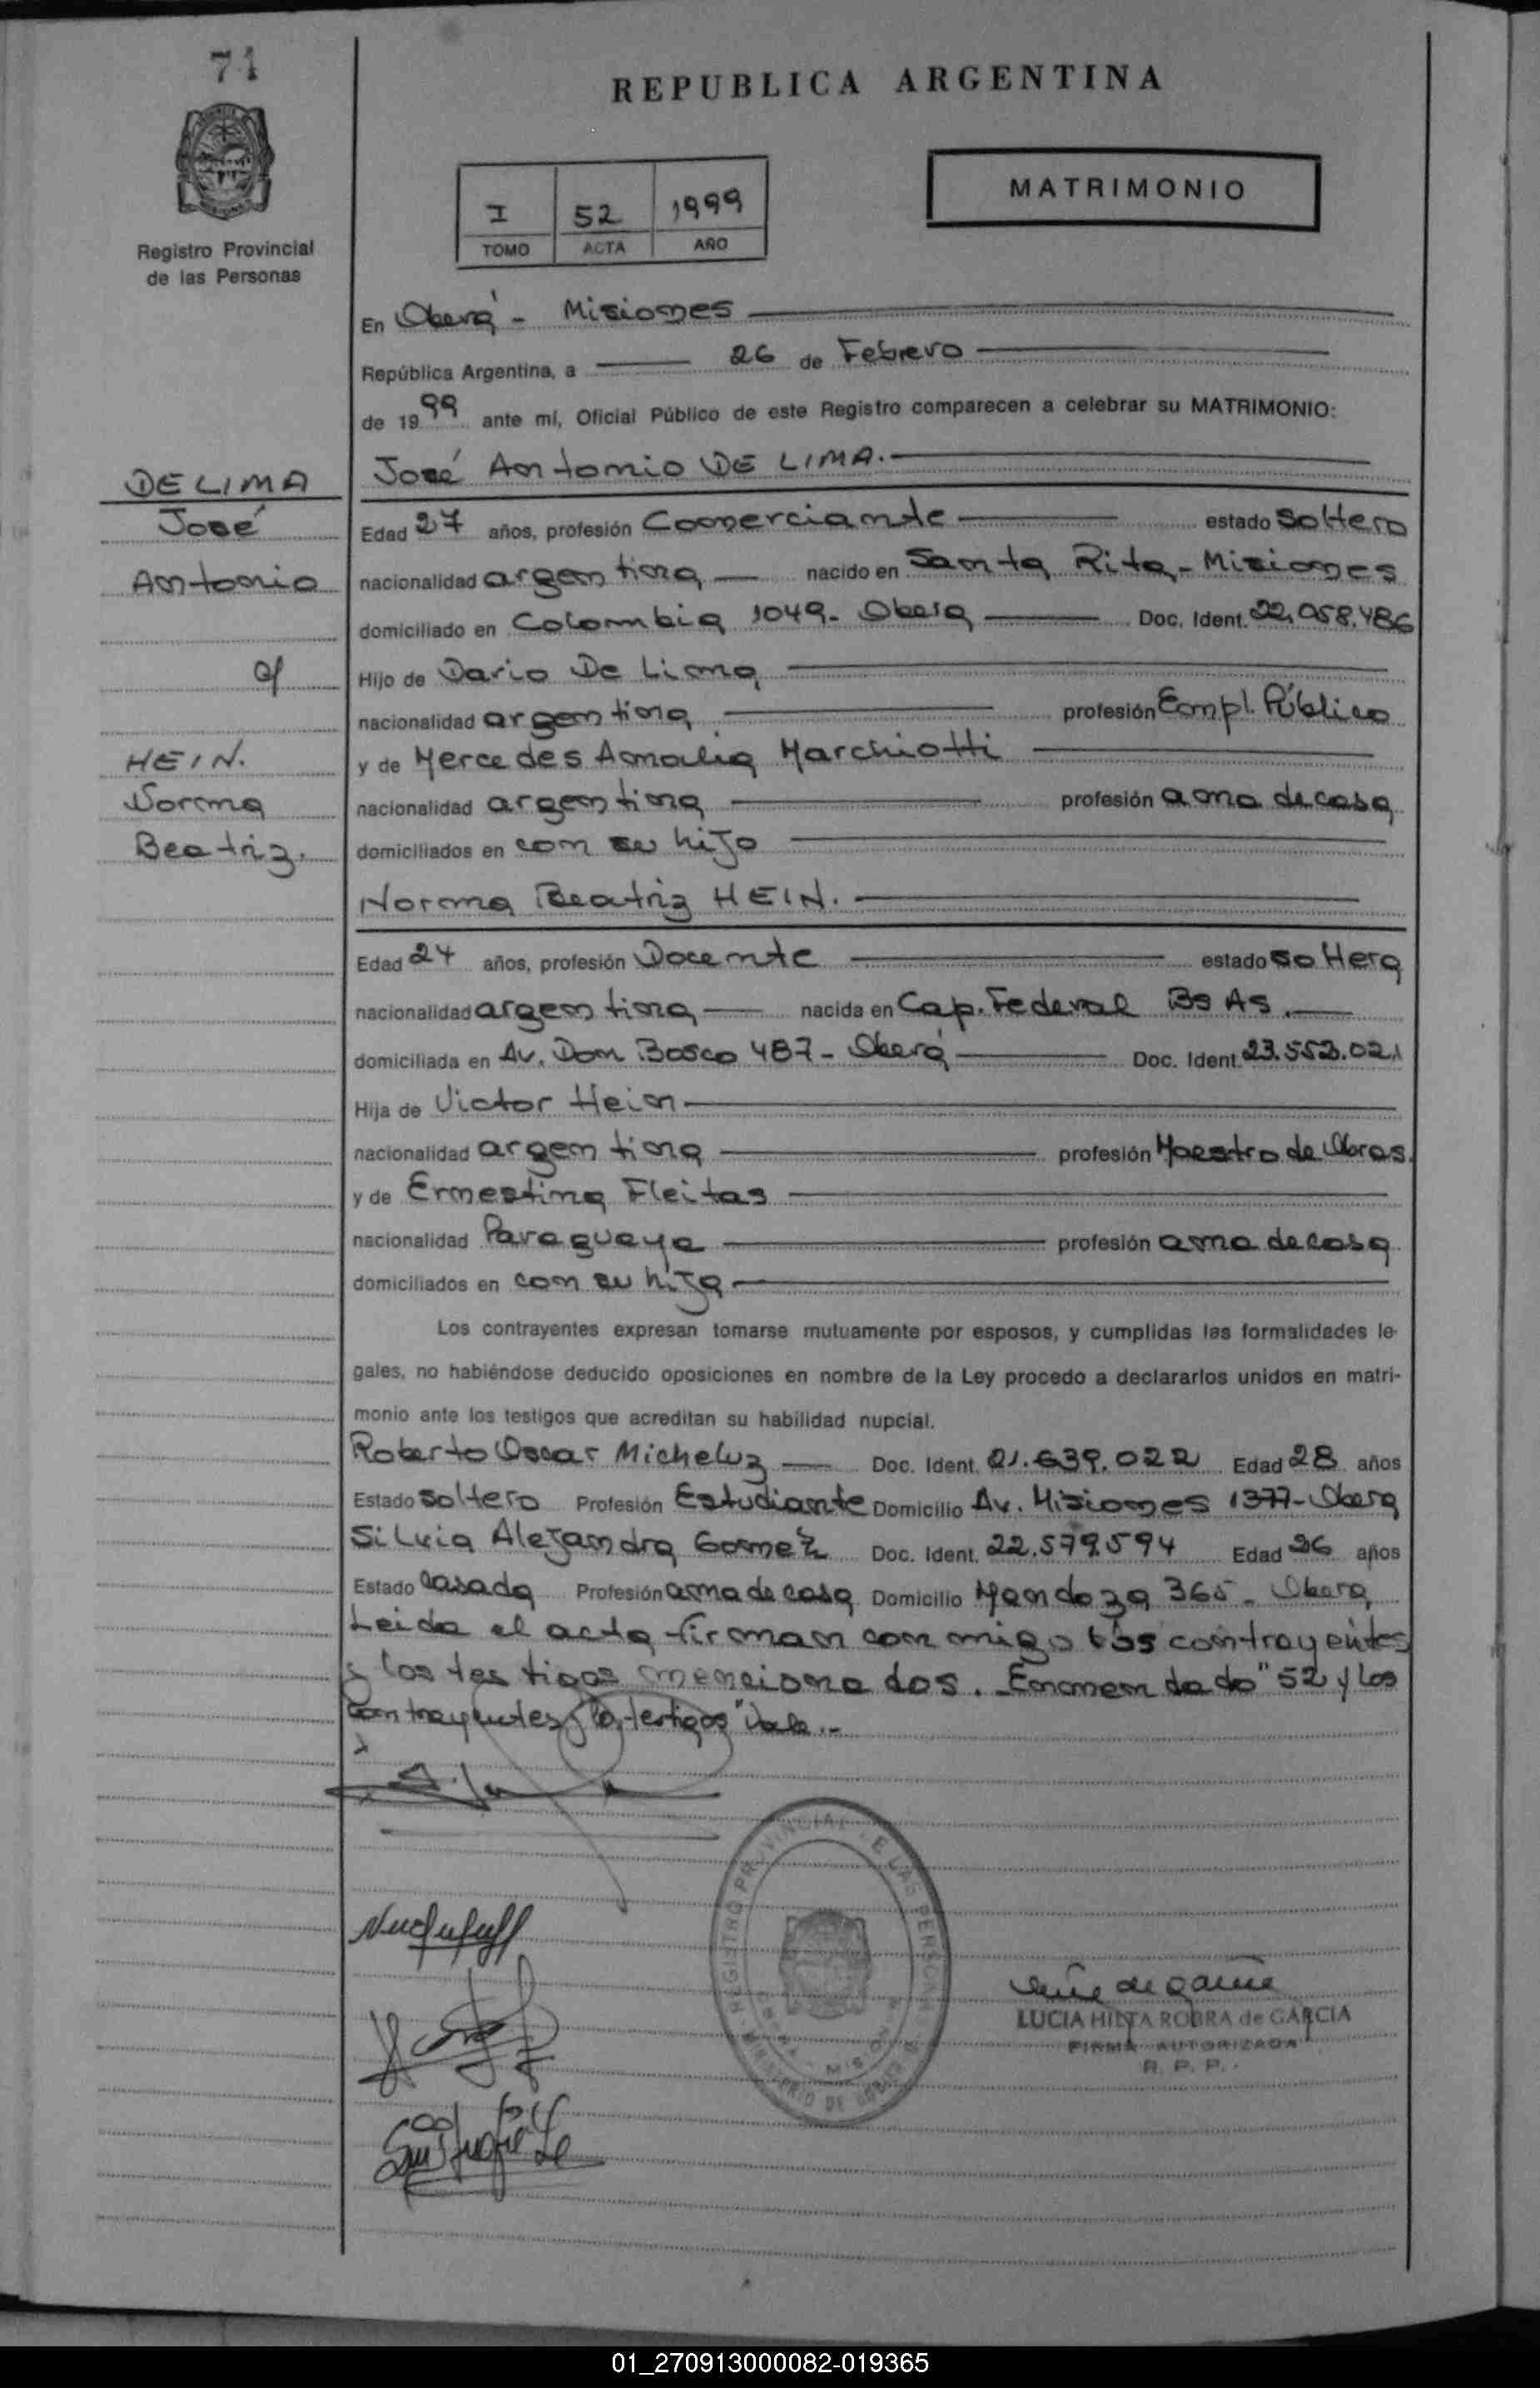 71
REPUBLICA ARGENTINA
MATRIMONIO
I 52 1999
TOMO ACTA AÑO
Registro Provincial
de las Personas
En Oberá - Misiones
República Argentina, a 26 de Febrero
de 1999 ante mí, Oficial Público de este Registro comparecen a celebrar su MATRIMONIO:
José Antonio DE LIMA.
DE LIMA
José
Antonio
c/
HEIN.
Norma
Beatriz.
Edad 27 años, profesión Comerciante estado Soltero
nacionalidad argentina nacido en Santa Rita - Misiones
domiciliado en Colombia 1049 - Oberá Doc. Ident. 22.058.486
Hijo de Dario De Lima
nacionalidad argentina profesión Empl. Público
y de Mercedes Amalia Marchiotti
nacionalidad argentina profesión ama de casa
domiciliados en con su hijo
Norma Beatriz HEIN.
Edad 24 años, profesión Docente estado soltera
nacionalidad argentina nacida en Cap. Federal Bs As.
domiciliada en Av. Don Bosco 487 - Oberá Doc. Ident. 23.553.021
Hija de Victor Hein
nacionalidad argentina profesión Maestro de Obras.
y de Ernestina Fleitas
nacionalidad Paraguaya profesión ama de casa
domiciliados en con su hija
Los contrayentes expresan tomarse mutuamente por esposos, y cumplidas las formalidades le-
gales, no habiéndose deducido oposiciones en nombre de la Ley procedo a declararlos unidos en matri-
monio ante los testigos que acreditan su habilidad nupcial.
Roberto Oscar Micheluz Doc. Ident. 21.639.022 Edad 28 años
Estado soltero Profesión Estudiante Domicilio Av. Misiones 1377 - Oberá
Silvia Alejandra Gomez Doc. Ident. 22.579.594 Edad 26 años
Estado Casada Profesión ama de casa Domicilio Mendoza 365 - Oberá
Leida el acta firman conmigo los contrayentes
y los testigos mencionados. Enmendado "52 y los
contrayentes y los testigos" Vale.-
REGISTRO PROVINCIAL DE LAS PERSONAS
LUCIA HILTA ROBRA de GARCIA
FIRMA AUTORIZADA
R. P. P.
01_270913000082-019365